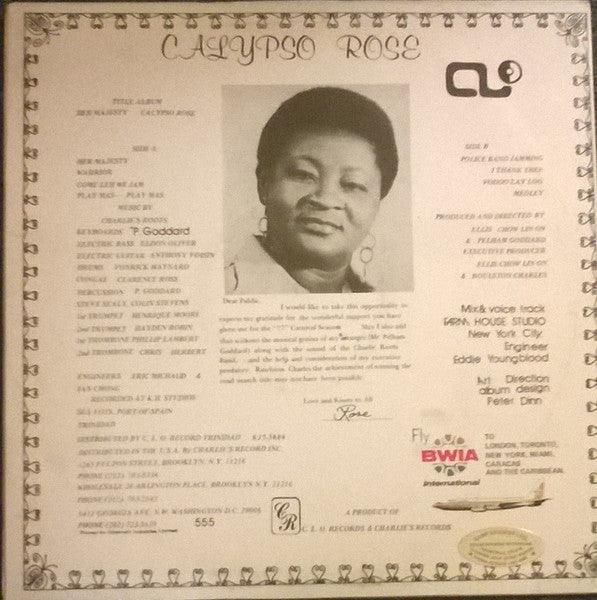 CALYPSO ROSE
CLO
TITLE ALBUM
HER MAJESTY CALYPSO ROSE
SIDE A
HER MAJESTY
WARRIOR
COME LEH WE JAM
PLAY MAS - PLAY MAS
MUSIC BY
CHARLIE'S ROOTS
KEYBOARDS P. Goddard
ELECTRIC BASS ELDON OLIVER
ELECTRIC GUITAR ANTHONY VOISIN
DRUMS VONRICK MAYNARD
CONGAS CLARENCE ROSE
PERCUSSION P. GODDARD
STEVE SEALY COLIN STEVENS
1st TRUMPET HENRIQUE MOORE
2nd TRUMPET HAYDEN ROBIN
1st TROMBONE PHILLIP LAMBERT
2nd TROMBONE CHRIS HERBERT
ENGINEERS ERIC MICHAUD &
IAN CHONG
RECORDED AT K.H. STUDIOS
SEA LOTS, PORT OF SPAIN
TRINIDAD
DISTRIBUTED BY C. L. O. RECORD TRINIDAD
DISTRIBUTED IN THE U.S.A. By CHARLIE'S RECORD INC.
1265 FULTON STREET, BROOKLYN. N.Y. 11216
PHONE (212)
WHOLESALE ARLINGTON PLACE, BROOKLYN N.Y. 11216
PHONE (212)
GEORGIA AVE. N.W. WASHINGTON D.C.
PHONE (202)
555
Dear Public.
I would like to take this opportunity to
express my gratitude for the wonderful support you have
given me for the "77" Carnival Season May I also add
that without the musical genius of my arranger (Mr. Pelham
Goddard) along with the sound of the Charlie Roots
Band, and the help and consideration of my executive
producer, Rawlston Charles the achievement of winning the
road march title may not have been possible
Love and Kisses to All
Rose
SIDE B
POLICE BAND JAMMING
I THANK THEE
VOODO LAY LOO
MEDLEY
PRODUCED AND DIRECTED BY
ELLIS CHOW LIN ON
& PELHAM GODDARD
EXECUTIVE PRODUCER
ELLIS CHOW LIN ON
& ROULSTON CHARLES
Mix & voice track
FARM HOUSE STUDIO
New York City
Engineer
Eddie Youngblood
Art Direction
album design
Peter Dinn
Fly
BWIA
International
TO
LONDON, TORONTO,
NEW YORK, MIAMI,
CARACAS
AND THE CARIBBEAN.
CR
A PRODUCT OF
C. L. O. RECORDS & CHARLIE'S RECORDS